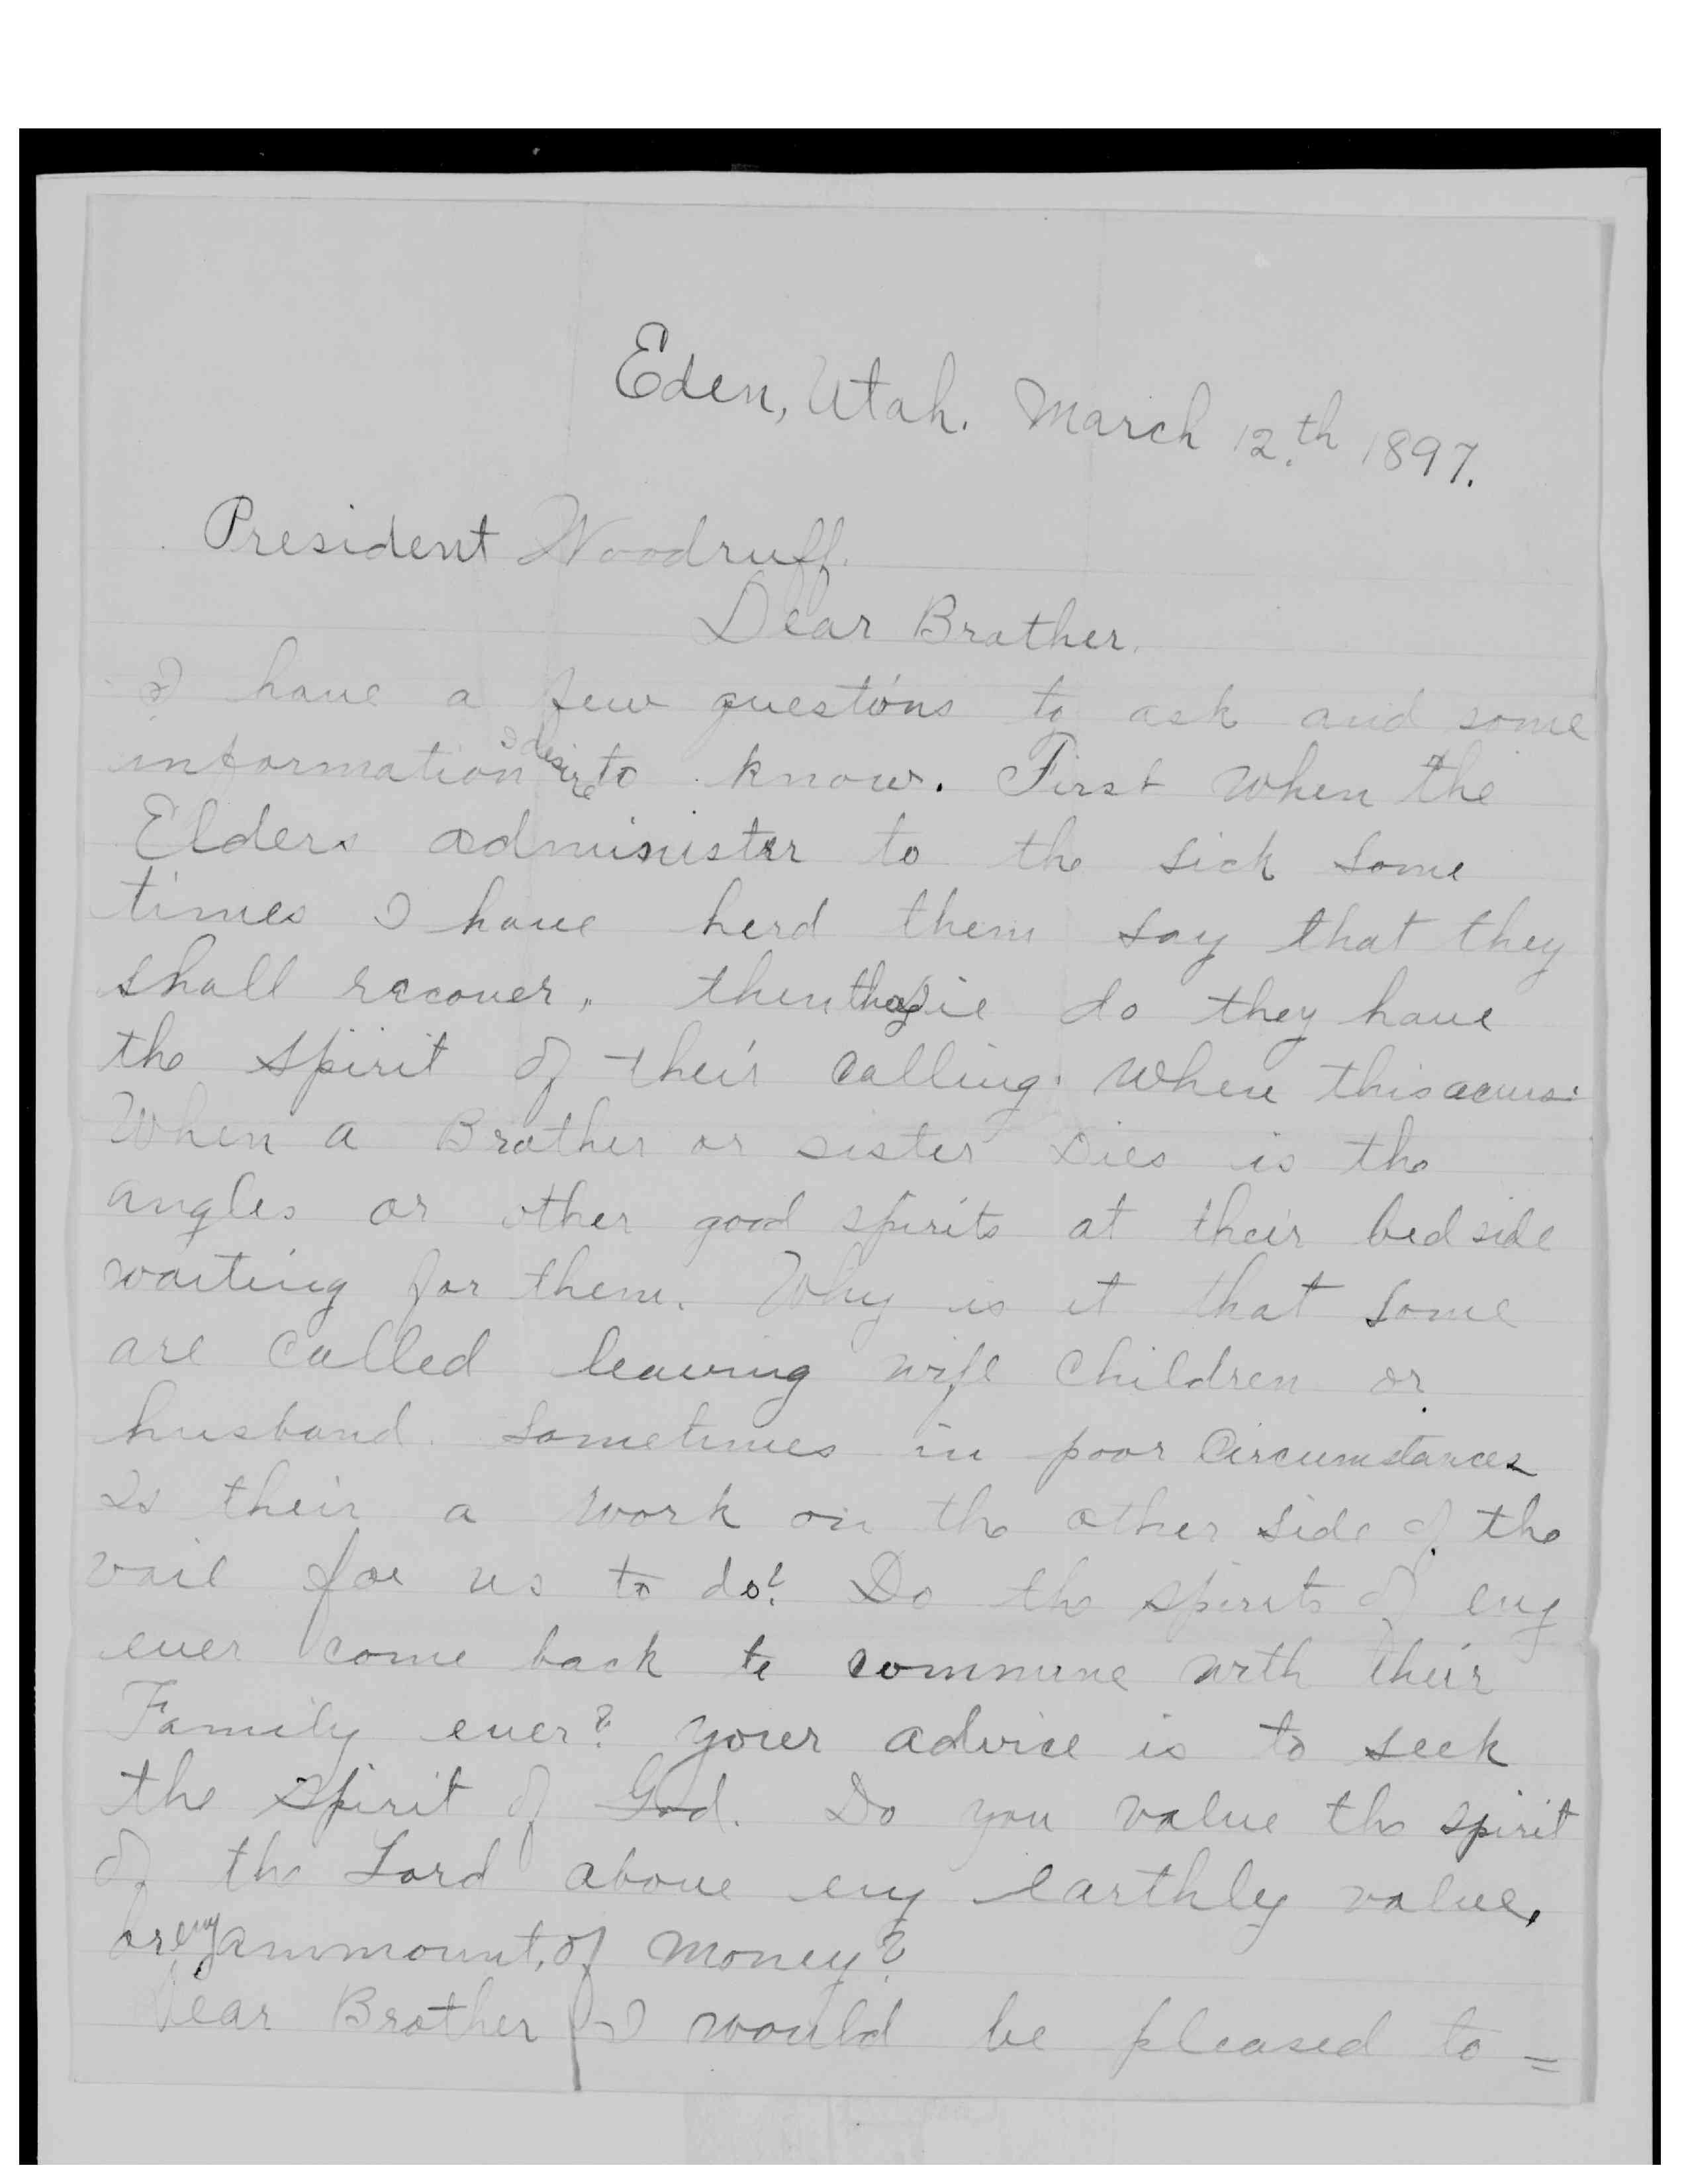 Eden, Utah. March 12.th 1897.
President Woodruff.
Dear Brother.
I have a few questions to ask and some
information I desire to know. First when the
Elders administer to the sick some
times I have herd them say that they
shall recover, then they die do they have
the spirit of their calling. when this
When a Brother or sister Dies is the
angles or other good spirits at their bed side
waiting for them. Why is it that some
are called leaving wife children or
husband. sometimes in poor circumstances
Is their a work on the other side of the
vail for us to do? Do the spirits of eny
ever come back to commune with their
Family ever? your advice is to seek
the spirit of God. Do you value the spirit
of the Lord above eny earthly value,
or eny ammount, of money?
Dear Brother I would be pleased to =